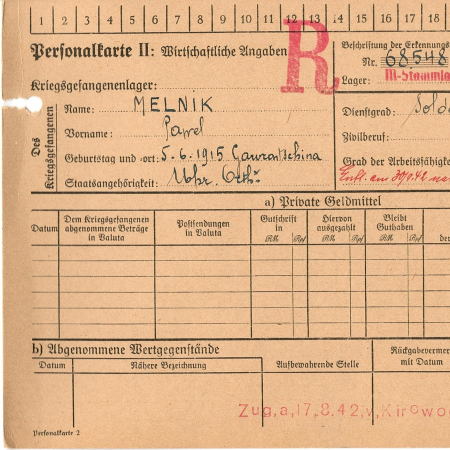 1 2 3 4 5 6 7 8 9 10 11 12 13 14 15 16 17 18
Personalkarte II: Wirtschaftliche Angaben
R
Beschriftung der Erkennungs
Nr. 68548
Lager: M-Stammla
Kriegsgefangenenlager:
Des Kriegsgefangenen
Name: MELNIK
Vorname: Pawel
Geburtstag und -ort: 5.6.1915
Staatsangehörigkeit: Ukr.
Dienstgrad: Solda
Zivilberuf:
Grad der Arbeitsfähigke
Entl. am
a) Private Geldmittel
Datum
Dem Kriegsgefangenen abgenommene Beträge in Valuta
Postsendungen in Valuta
Gutschrift in
RM Rpf
Hiervon ausgezahlt
RM Rpf
Bleibt Guthaben
RM Rpf
der
b) Abgenommene Wertgegenstände
Datum
Nähere Bezeichnung
Aufbewahrende Stelle
Rückgabevermer
mit Datum
Zug,a,17.8.42,v,Kirowo
Personalkarte 2